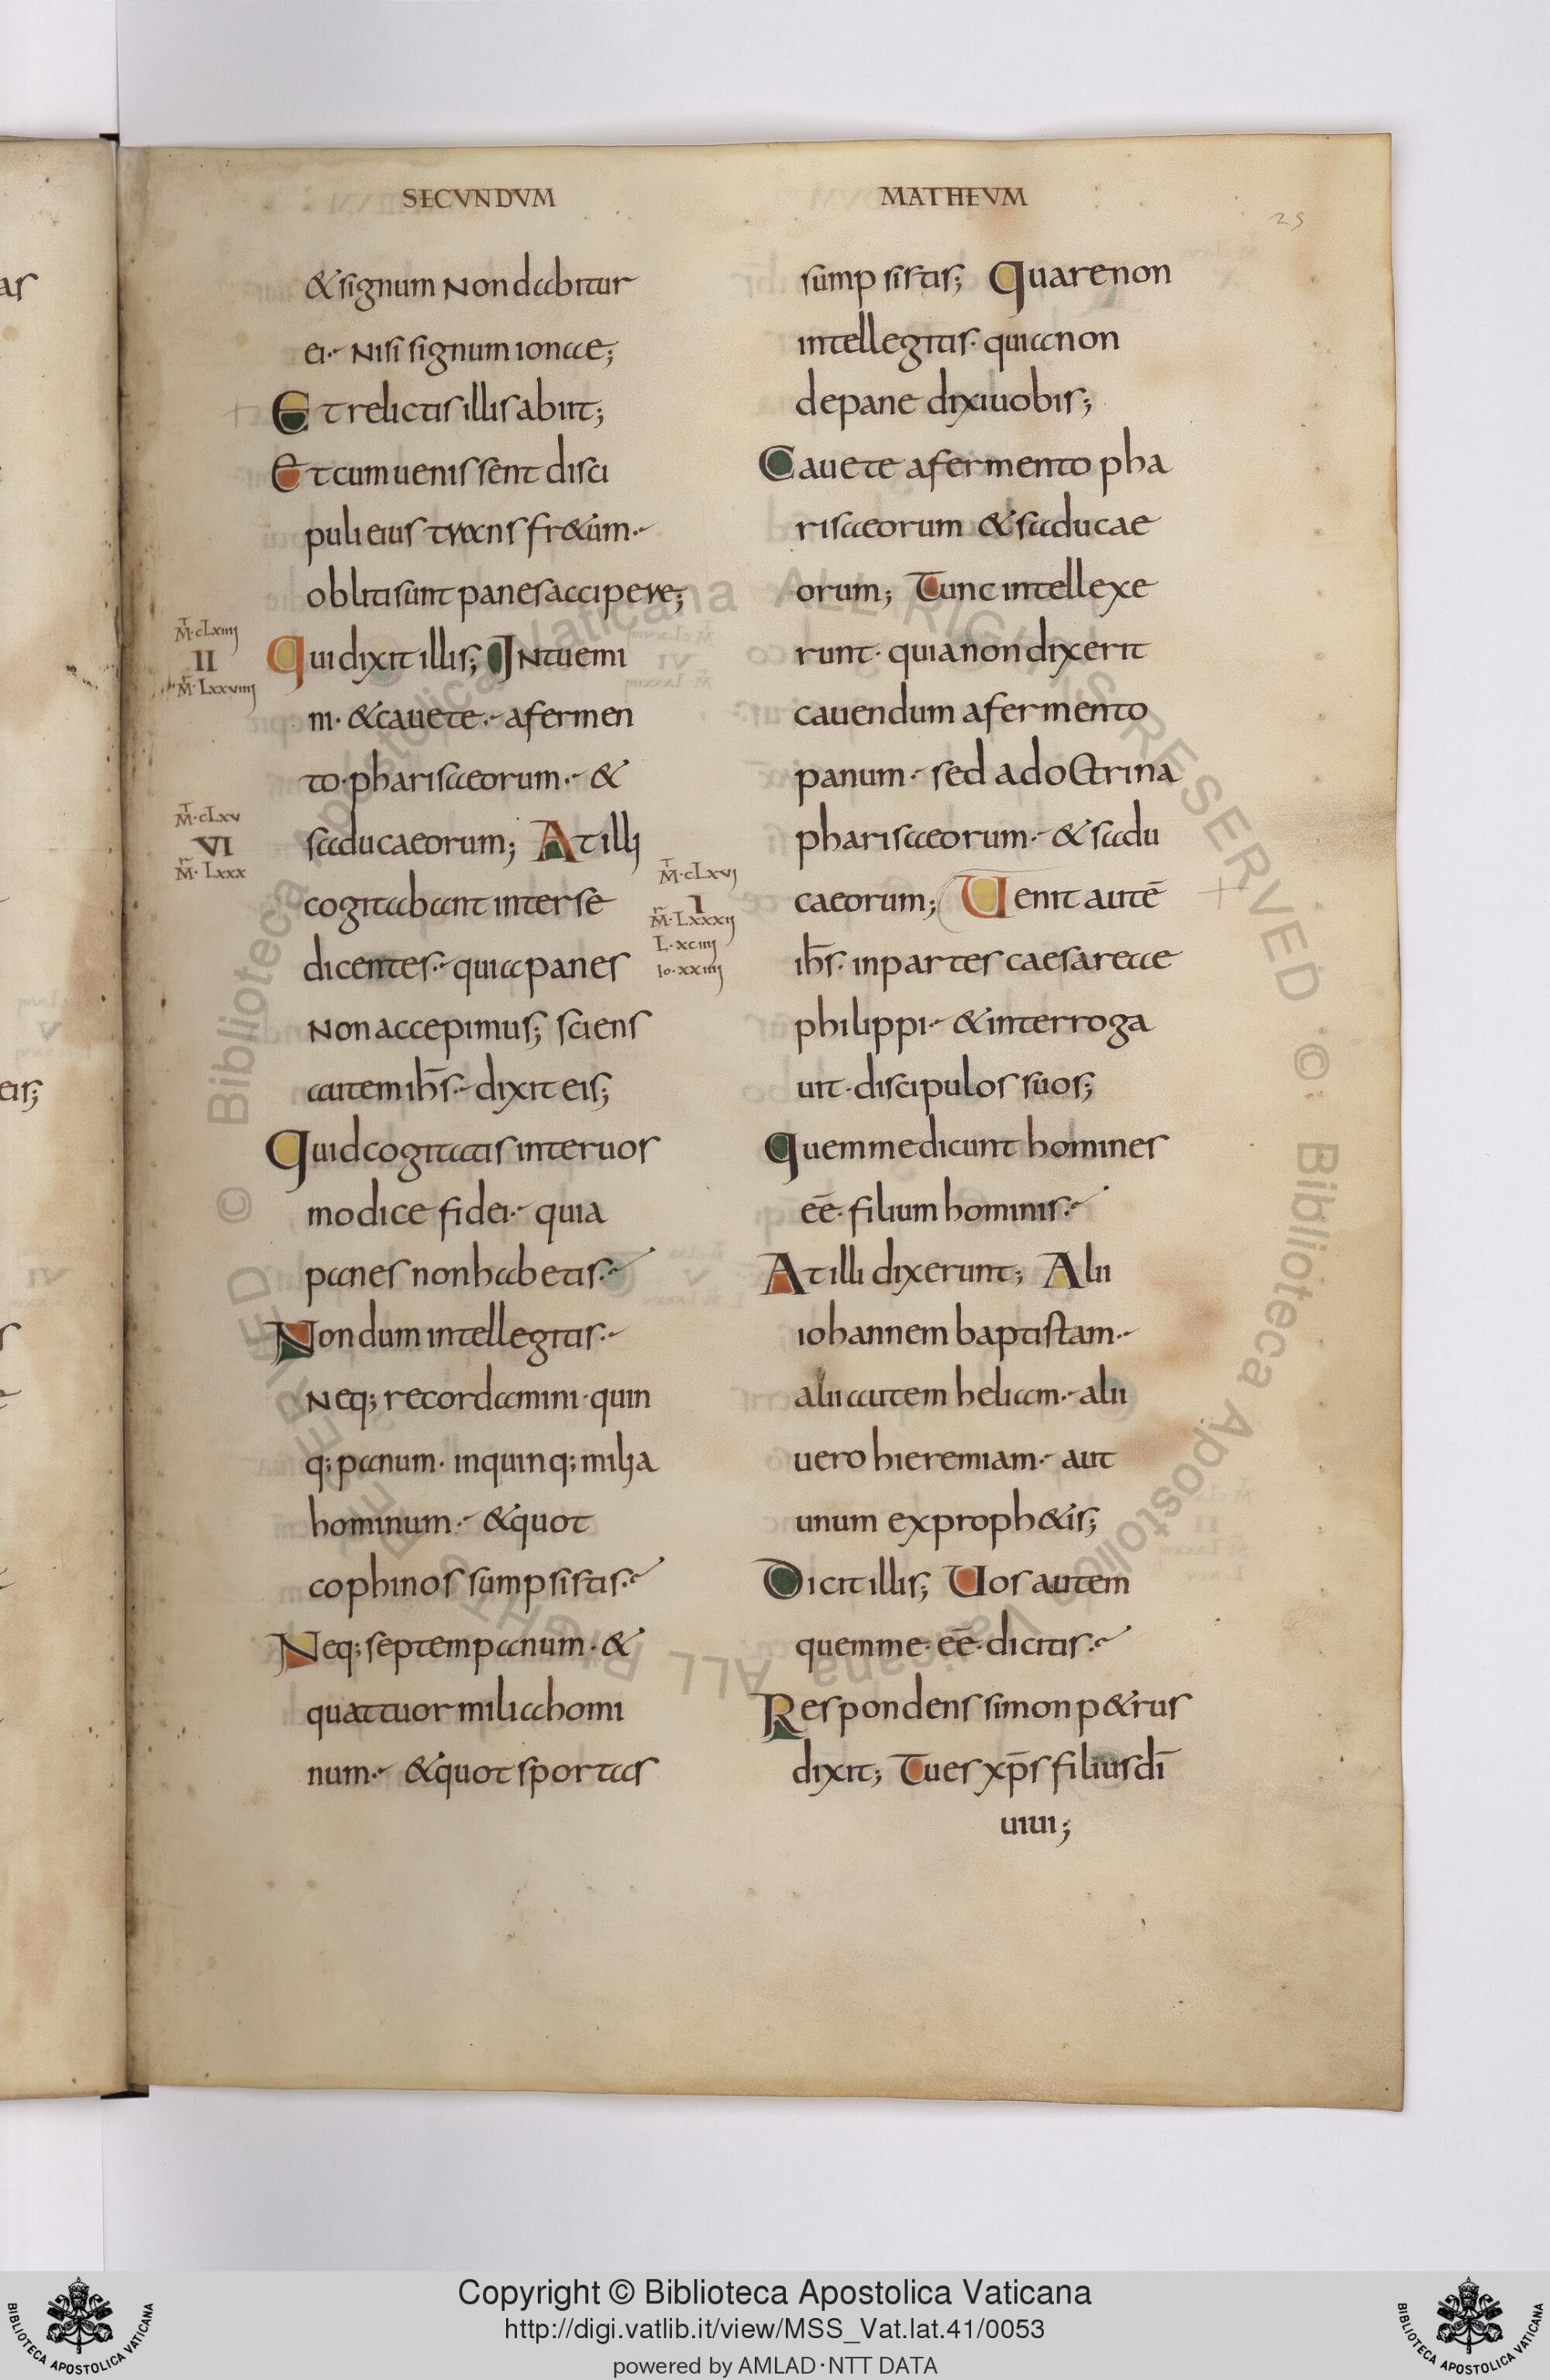 SECVNDVM
&signum Non dabitur
ei·- Nisi signum ionae;
Et relictis illis abiit;
Et cum uenissent disci
puli eius trans fr&um·-
obliti sunt panes accipere;
Qui dixit illis; INtuemi
ni· &cauete·- a fermen
to· pharisaeorum·- &
saducaeorum; At illi
cogitabant inter se
dicentes·- quia panes
Non accepimus; sciens
autem ih̅s·- dixit eis;
Quid cogitatis inter uos
modice fidei·- quia
panes non habetis·-
Nondum intellegitis·-
Neq; recordamini· quin
q; panum· in quinq; milia
hominum·- &quot
cophinos sumpsistis·-
Neq; septem panum· &
quattuor milia homi
num·- &quot sportas
M̅·cLxiiii
II
M̅·Lxxviiii
M̅·cLxv
VI
M̅·Lxxx
MATHEVM
25
sumpsistis; Quare non
intellegitis· quia non
de pane dixi uobis;
Cauete a fermento pha
risaeorum &saducae
orum; Tunc intellexe
runt· quia non dixerit
cauendum a fermento
panum·- sed a doctrina
pharisaeorum·- &sadu
caeorum; Uenit autē
ih̅s· in partes caesareae
philippi·- &interroga
uit· discipulos suos;
Quem me dicunt homines
eē· filium hominis·-
At illi dixerunt; Alii
iohannem baptistam·-
alii autem heliam·- alii
uero hieremiam·- aut
unum ex proph&is;
Dicit illis; Uos autem
quem me· eē· dicitis·-
Respondens simon p&rus
dixit; Tu es xp̅s filius dī
uiui;
M̅·cLxvi
I
M̅·Lxxxii
L·xciiii
Io·xxiiii
© Biblioteca Apostolica Vaticana ALL RIGHTS RESERVED © Biblioteca Apostolica Vaticana ALL RIGHTS RESERVED
Copyright © Biblioteca Apostolica Vaticana
http://digi.vatlib.it/view/MSS_Vat.lat.41/0053
powered by AMLAD·NTT DATA
BIBLIOTECA APOSTOLICA VATICANA
BIBLIOTECA APOSTOLICA VATICANA